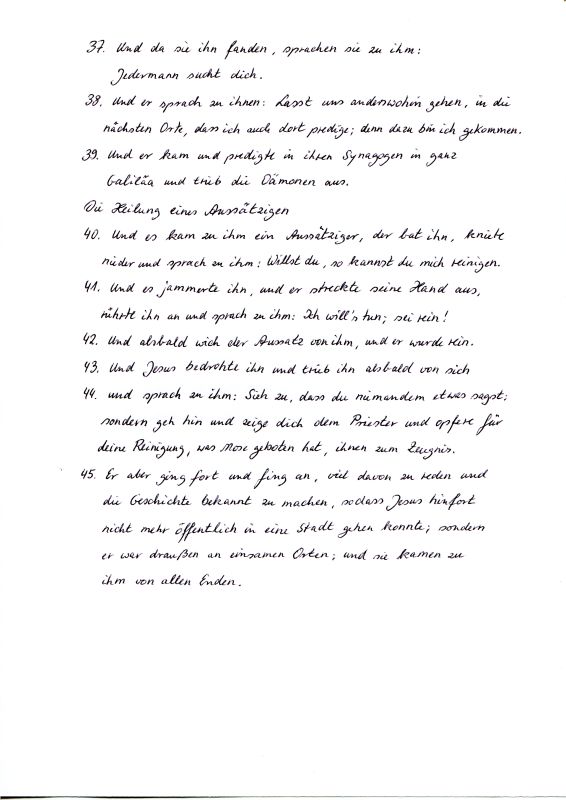 37. Und da sie ihn fanden, sprachen sie zu ihm:
Jedermann sucht dich.
38. Und er sprach zu ihnen: Lasst uns anderswohin gehen, in die
nächsten Orte, dass ich auch dort predige; denn dazu bin ich gekommen.
39. Und er kam und predigte in ihren Synagogen in ganz
Galiläa und trieb die Dämonen aus.
Die Heilung eines Aussätzigen
40. Und es kam zu ihm ein Aussätziger, der bat ihn, kniete
nieder und sprach zu ihm: Willst du, so kannst du mich reinigen.
41. Und es jammerte ihn, und er streckte seine Hand aus,
rührte ihn an und sprach zu ihm: Ich will's tun; sei rein!
42. Und alsbald wich der Aussatz von ihm, und er wurde rein.
43. Und Jesus bedrohte ihn und trieb ihn alsbald von sich
44. und sprach zu ihm: Sieh zu, dass du niemandem etwas sagst;
sondern geh hin und zeige dich dem Priester und opfere für
deine Reinigung, was Mose geboten hat, ihnen zum Zeugnis.
45. Er aber ging fort und fing an, viel davon zu reden und
die Geschichte bekannt zu machen, sodass Jesus hinfort
nicht mehr öffentlich in eine Stadt gehen konnte; sondern
er war draußen an einsamen Orten; und sie kamen zu
ihm von allen Enden.